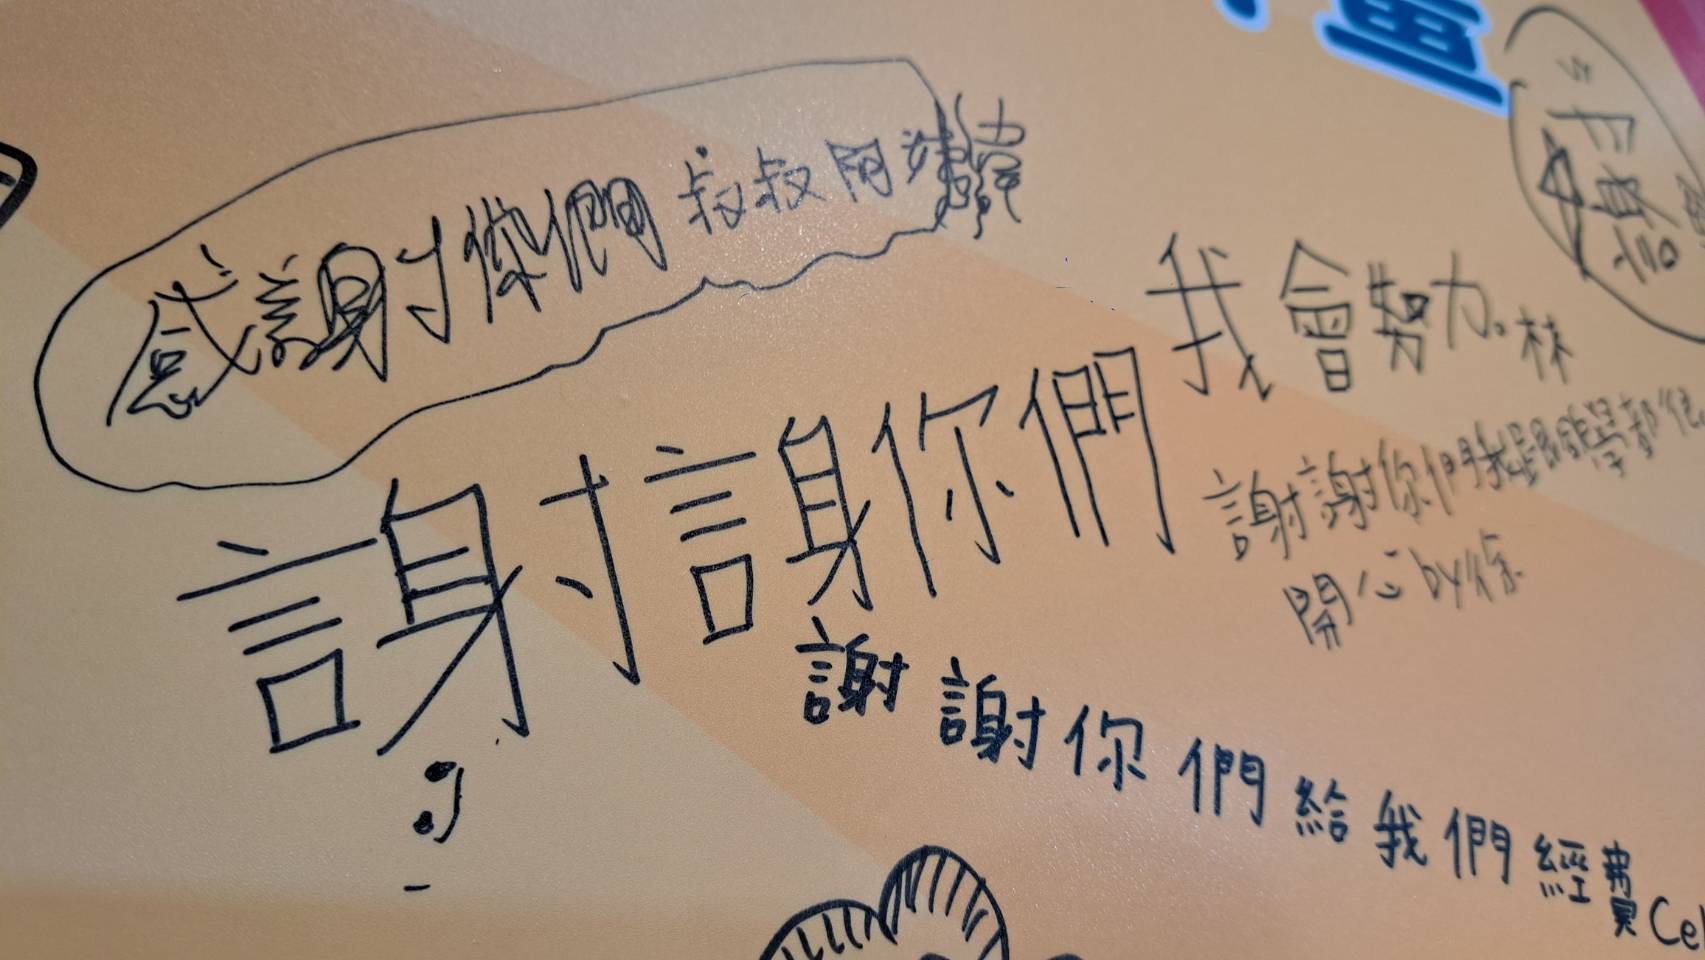 感謝你們叔叔阿姨
我會努力。林
謝謝你們
謝謝你們我跟同學都很
開心by徐
謝謝你們給我們經費Cel